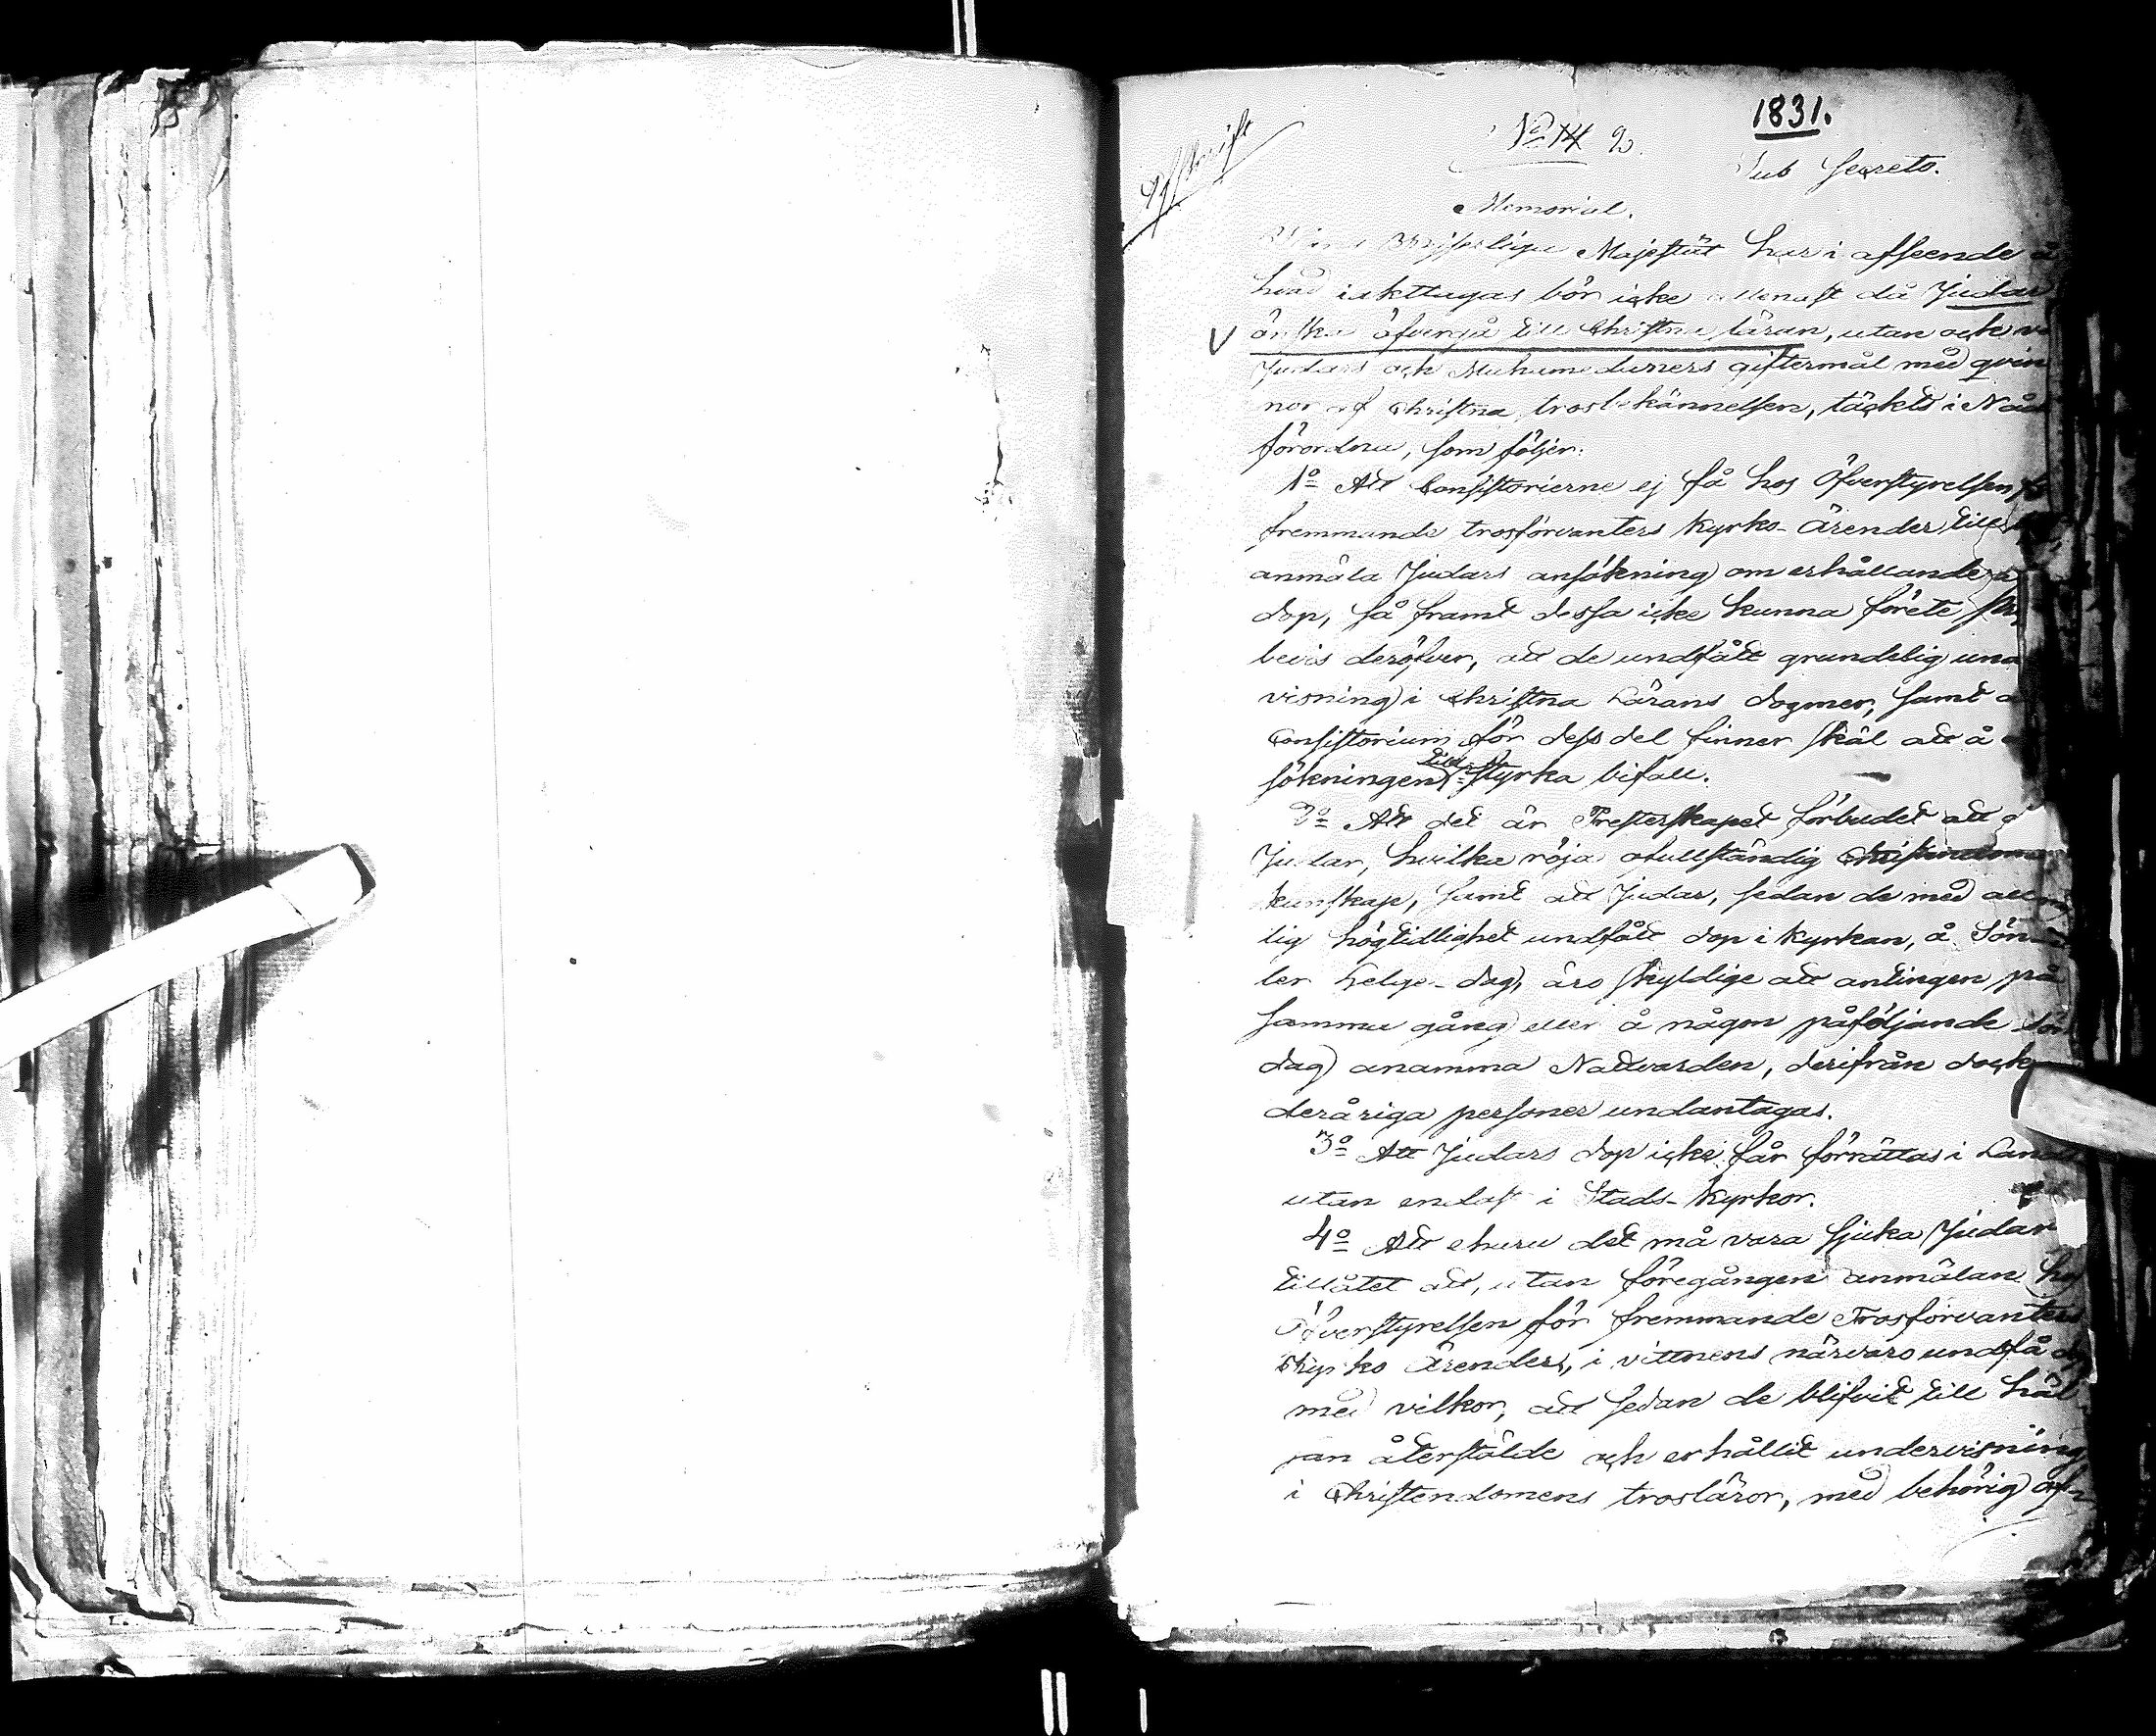 1831.
Afskrift
No 14 90.
Sub Secreto.
Memorial.
Hans Kejserliga Majestät har i afseende å
hvad iakttagas bör icke allenast då Judar
önska öfvergå till Christna läran, utan ock
Judars och Muhamedaners giftermål med qvin
nor af Christna trosbekännelsen, täckts i Nåd
förordna, som följer:
1o Att Consistorierne ej få hos Öfverstyrelsen fö
fremmande trosförvanters Kyrko-Ärender till
anmäla Judars ansökning om erhållande a
dop, så framt dessa icke kunna förete
bevis deröfver, att de undfått grundelig und
visning i Christna Lärans dogmer, samt a
Consistorium för dess del finner skäl att å
sökningen till-styrka bifall.
2o Att det är Presterskapet förbudet att
Judar, hvilka röja ofullständig Christendoms
kunskap, samt att Judar, sedan de med all
lig högtidlighet undfått dop i Kyrkan, å Sön
ler Helge-dag, äro skyldige att antingen på
samma gång eller å någon påföljande Sön
dag anamma Nattvarden, derifrån dock
deråriga personer undantagas.
3o Att Judars dop icke får förrättas i Lands
utan endast i Stads-Kyrkor.
4o Att ehuru det må vara sjuka Judar
tillåtet att, utan föregången anmälan ho
Öfverstyrelsen för fremmande Trosförvanters
Kyrko Ärender, i vittnens närvaro undfå dop
med vilkor, att sedan de blifvit till häl
san återstälde och erhållit undervisning
i Christendomens trosläror, med behörig af